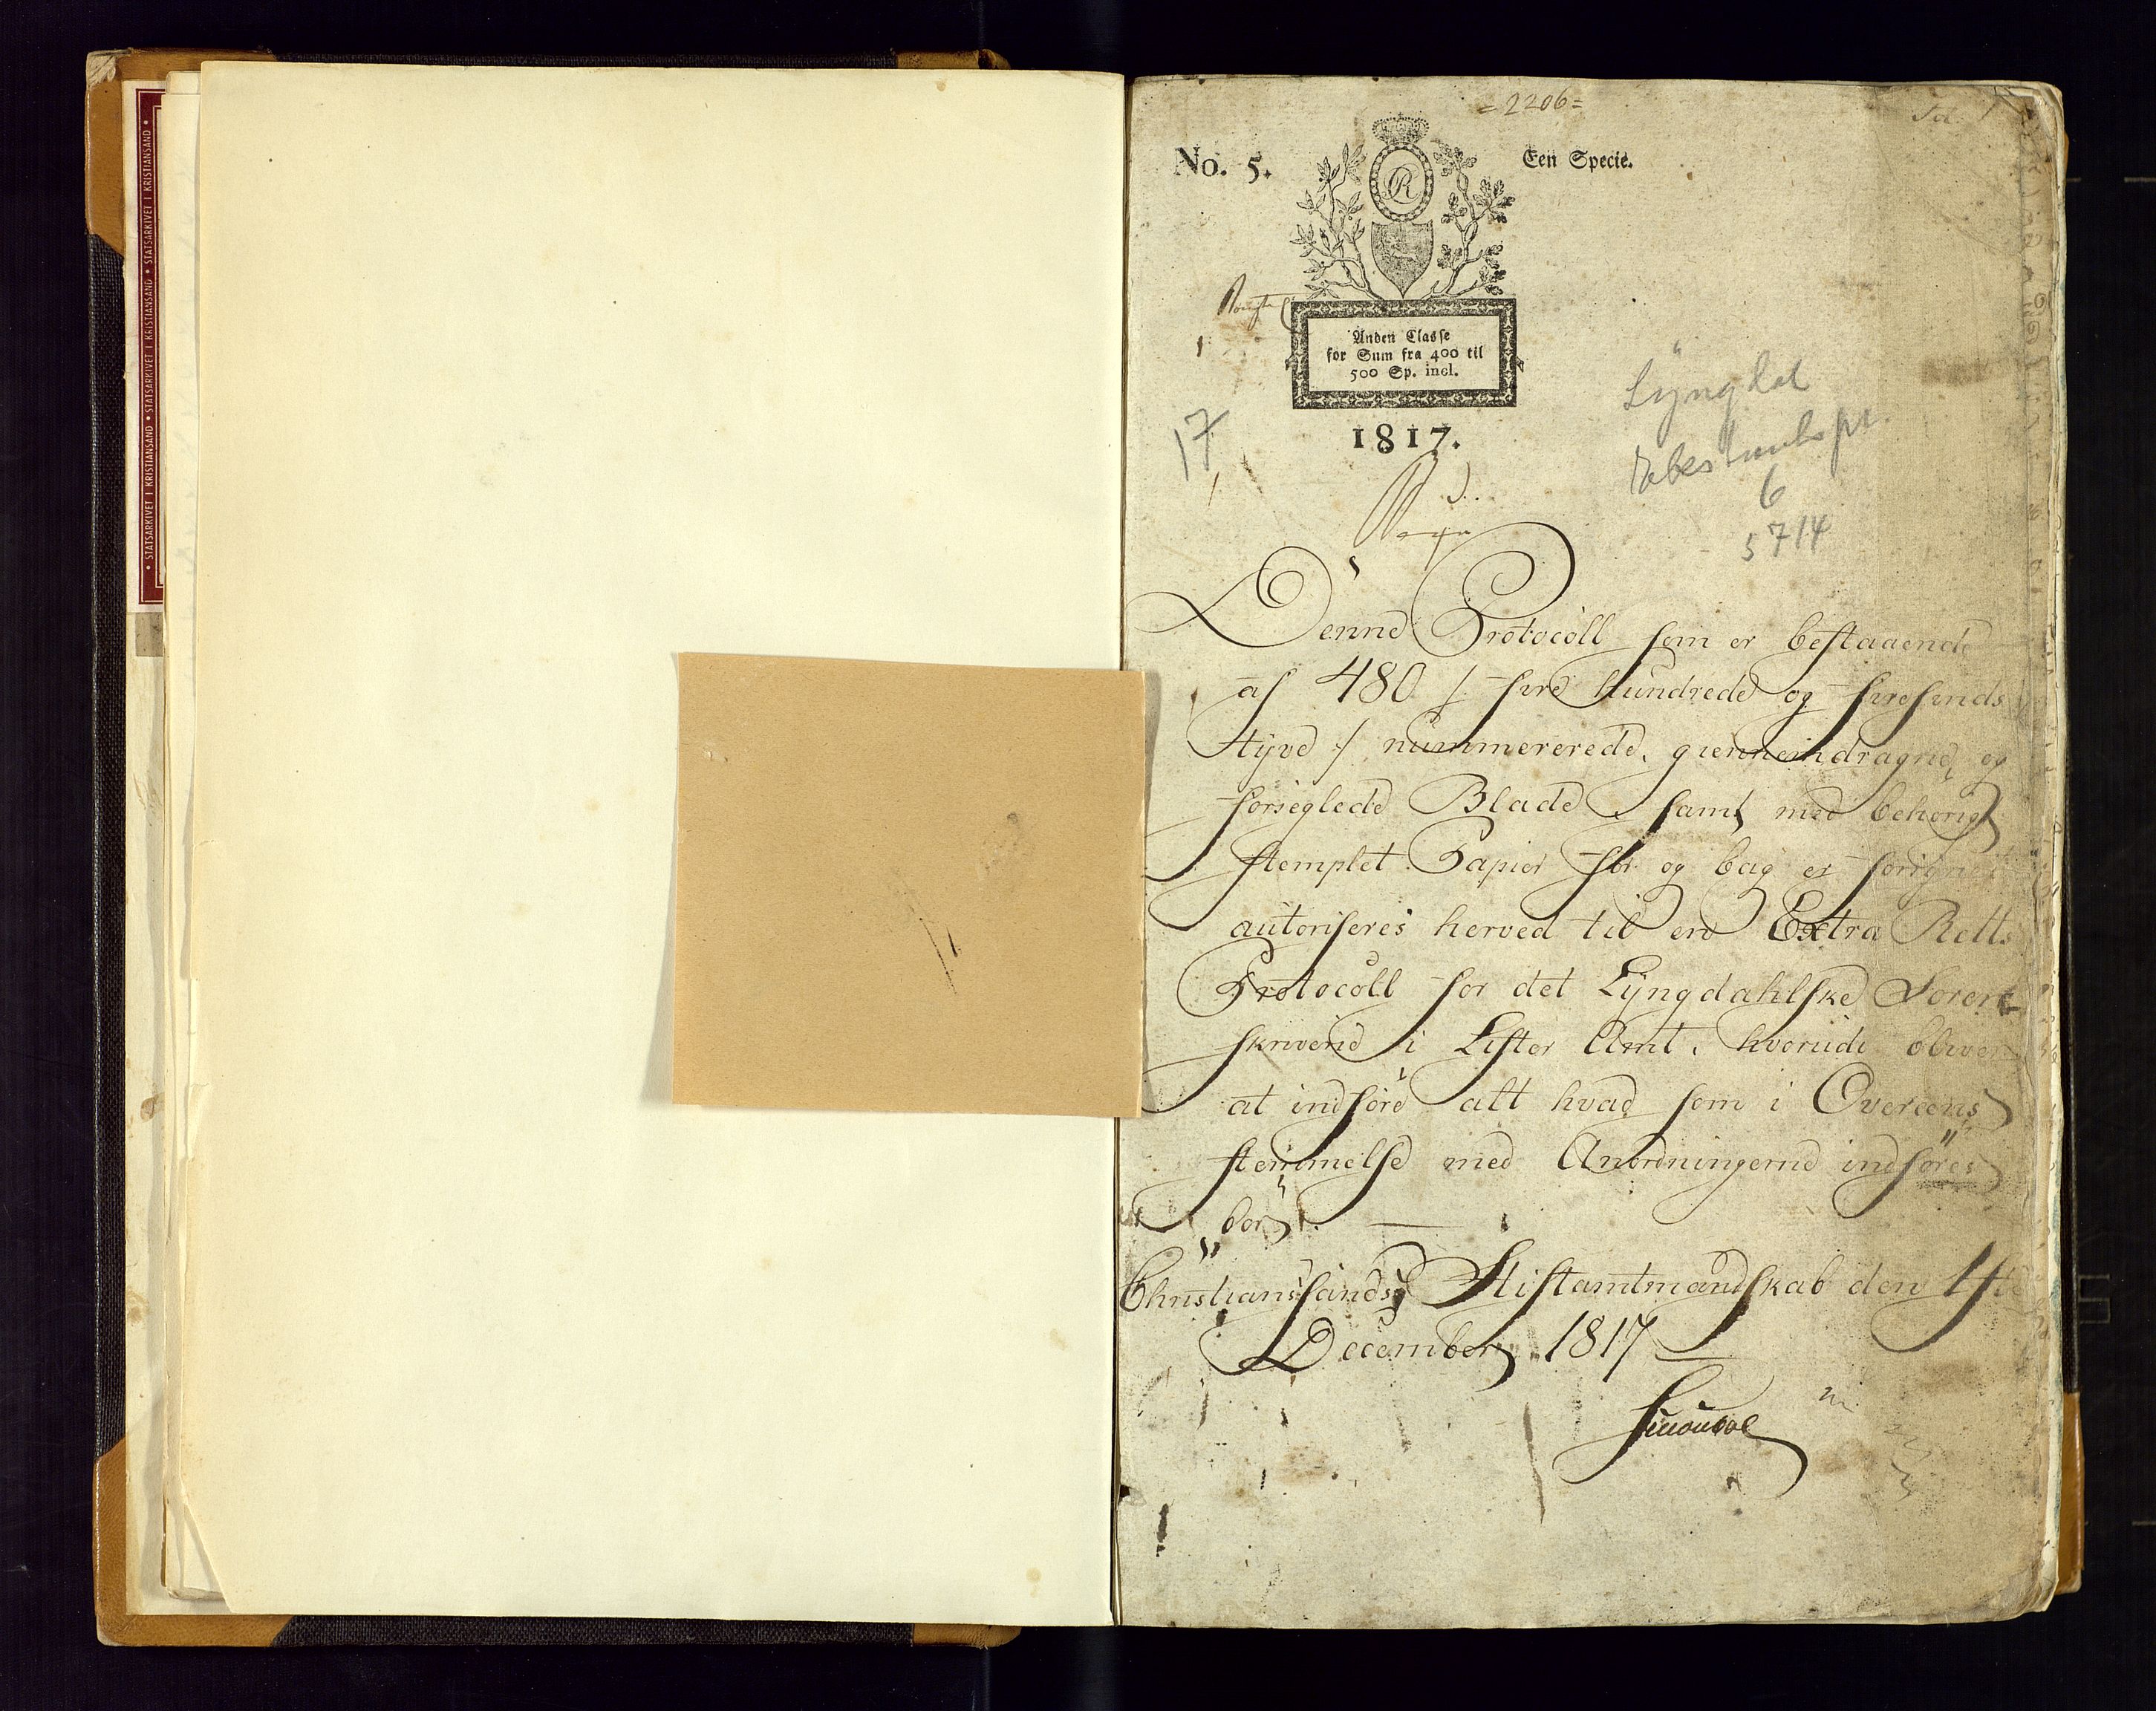 • STATSARKIVET I KRISTIANSAND • STATSARKIVET I KRISTIANSAND • STATSARKIVET I KRISTIANSAND •
=2206=
No. 5.
Een Specie.
R
Anden Classe
for Sum fra 400 til
500 Sp. incl.
1817.
17
Lyngdal
6
5714
Denne Protocoll som er bestaaende
af 480 /: fire hundrede og firesinds
tyve :/ nummererede, giennemdragne og
forseglede Blade, samt med behørigt
stemplet Papier for og bag er forsynet
autoriseres herved til en Extra Retts
Protocoll for det Lyngdahlske Soren
skriverie i Lister Amt, hvorudi bliver
at indføre alt hvad som i Overeens
stemmelse med Anordningerne indføres
bør.
Christiansands Stiftamtmandskab den
December 1817